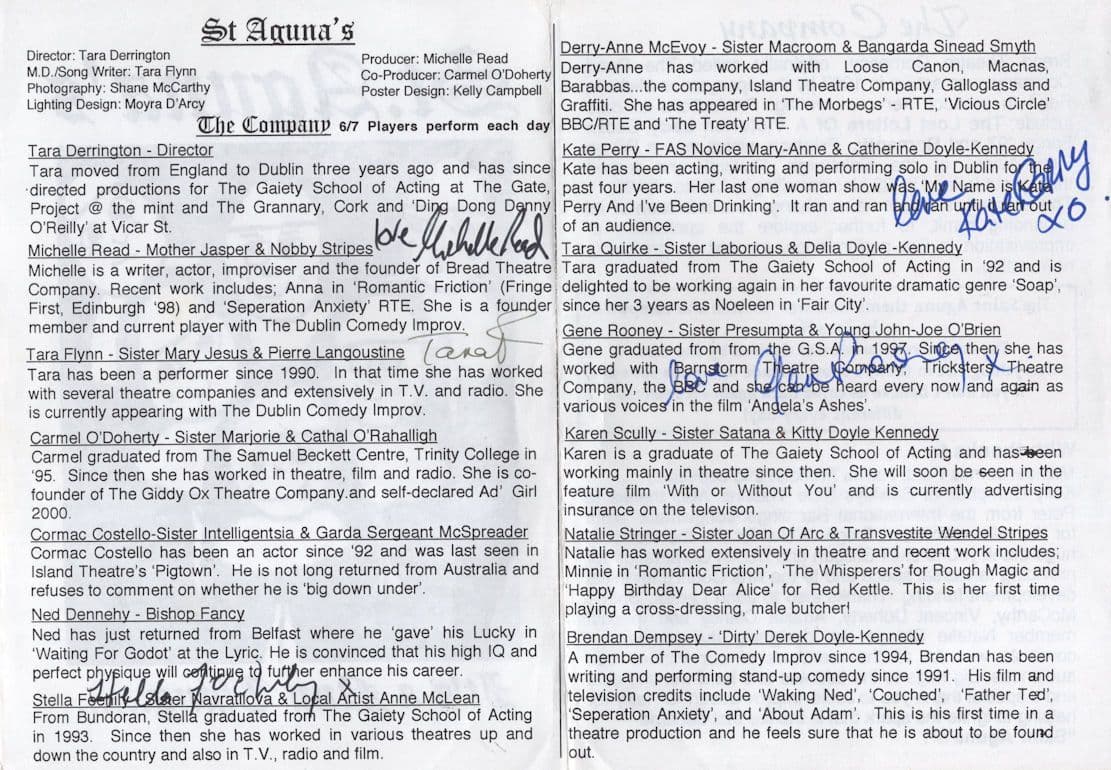 St Aguna's
Director: Tara Derrington
M.D./Song Writer: Tara Flynn
Photography: Shane McCarthy
Lighting Design: Moyra D'Arcy
Producer: Michelle Read
Co-Producer: Carmel O'Doherty
Poster Design: Kelly Campbell
The Company 6/7 Players perform each day
Tara Derrington - Director
Tara moved from England to Dublin three years ago and has since
directed productions for The Gaiety School of Acting at The Gate,
Project @ the mint and The Grannary, Cork and 'Ding Dong Denny
O'Reilly' at Vicar St.
love Michelle Read
Michelle Read - Mother Jasper & Nobby Stripes
Michelle is a writer, actor, improviser and the founder of Bread Theatre
Company. Recent work includes; Anna in 'Romantic Friction' (Fringe
First, Edinburgh '98) and 'Seperation Anxiety' RTE. She is a founder
member and current player with The Dublin Comedy Improv.
Tara F
Tara Flynn - Sister Mary Jesus & Pierre Langoustine
Tara has been a performer since 1990. In that time she has worked
with several theatre companies and extensively in T.V. and radio. She
is currently appearing with The Dublin Comedy Improv.
Carmel O'Doherty - Sister Marjorie & Cathal O'Rahalligh
Carmel graduated from The Samuel Beckett Centre, Trinity College in
'95. Since then she has worked in theatre, film and radio. She is co-
founder of The Giddy Ox Theatre Company.and self-declared Ad' Girl
2000.
Cormac Costello-Sister Intelligentsia & Garda Sergeant McSpreader
Cormac Costello has been an actor since '92 and was last seen in
Island Theatre's 'Pigtown'. He is not long returned from Australia and
refuses to comment on whether he is 'big down under'.
Ned Dennehy - Bishop Fancy
Ned has just returned from Belfast where he 'gave' his Lucky in
'Waiting For Godot' at the Lyric. He is convinced that his high IQ and
perfect physique will continue to further enhance his career.
x
Stella Navratilova & Local Artist Anne McLean
From Bundoran, Stella graduated from The Gaiety School of Acting
in 1993. Since then she has worked in various theatres up and
down the country and also in T.V., radio and film.
Derry-Anne McEvoy - Sister Macroom & Bangarda Sinead Smyth
Derry-Anne has worked with Loose Canon, Macnas,
Barabbas...the company, Island Theatre Company, Galloglass and
Graffiti. She has appeared in 'The Morbegs' - RTE, 'Vicious Circle'
BBC/RTE and 'The Treaty' RTE.
Kate Perry - FAS Novice Mary-Anne & Catherine Doyle-Kennedy
Kate has been acting, writing and performing solo in Dublin for the
past four years. Her last one woman show was 'My Name is Kate
Perry And I've Been Drinking'. It ran and ran and ran until it ran out
of an audience.
Love Kate Perry
XO
Tara Quirke - Sister Laborious & Delia Doyle -Kennedy
Tara graduated from The Gaiety School of Acting in '92 and is
delighted to be working again in her favourite dramatic genre 'Soap',
since her 3 years as Noeleen in 'Fair City'.
Gene Rooney - Sister Presumpta & Young John-Joe O'Brien
Gene graduated from from the G.S.A. in 1997. Since then she has
worked with Barnstorm Theatre Company, Tricksters Theatre
Company, the BBC and she can be heard every now and again as
various voices in the film 'Angela's Ashes'.
love Gene Rooney x
Karen Scully - Sister Satana & Kitty Doyle Kennedy
Karen is a graduate of The Gaiety School of Acting and has been
working mainly in theatre since then. She will soon be seen in the
feature film 'With or Without You' and is currently advertising
insurance on the televison.
Natalie Stringer - Sister Joan Of Arc & Transvestite Wendel Stripes
Natalie has worked extensively in theatre and recent work includes;
Minnie in 'Romantic Friction', 'The Whisperers' for Rough Magic and
'Happy Birthday Dear Alice' for Red Kettle. This is her first time
playing a cross-dressing, male butcher!
Brendan Dempsey - 'Dirty' Derek Doyle-Kennedy
A member of The Comedy Improv since 1994, Brendan has been
writing and performing stand-up comedy since 1991. His film and
television credits include 'Waking Ned', 'Couched', 'Father Ted',
'Seperation Anxiety', and 'About Adam'. This is his first time in a
theatre production and he feels sure that he is about to be found
out.